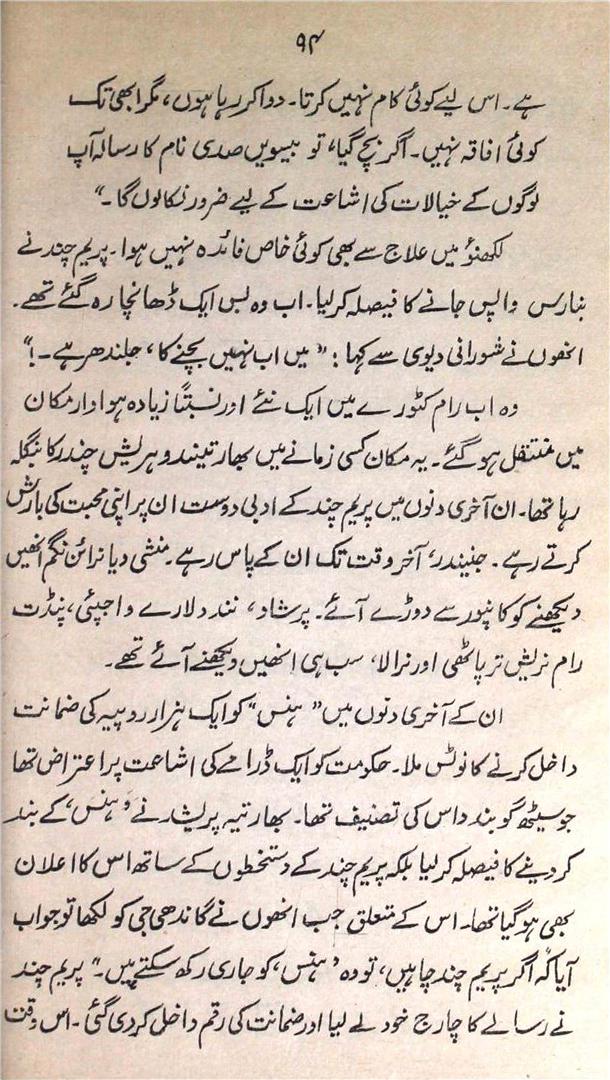 ۹۴
ہے۔ اس لیے کوئی کام نہیں کرتا۔ دوا کر رہا ہوں، مگر ابھی تک
کوئی افاقہ نہیں۔ اگر بچ گیا، تو بیسویں صدی نام کا رسالہ آپ
لوگوں کے خیالات کی اشاعت کے لیے ضرور نکالوں گا ۔"
لکھنؤ میں علاج سے بھی کوئی خاص فائدہ نہیں ہوا۔ پریم چند نے
بنارس واپس جانے کا فیصلہ کر لیا۔ اب وہ بس ایک ڈھانچا رہ گئے تھے۔
انھوں نے شورانی دیوی سے کہا: "میں اب نہیں بچنے کا، جلندھر ہے۔!"
وہ اب رام کٹورے میں ایک نئے اور نسبتاً زیادہ ہوادار مکان
میں منتقل ہو گئے۔ یہ مکان کسی زمانے میں بھارتیندو ہریش چندر کا بنگلہ
رہا تھا۔ ان آخری دنوں میں پریم چند کے ادبی دوست ان پر اپنی محبت کی بارش
کرتے رہے۔ جنیندر، آخر وقت تک ان کے پاس رہے۔ منشی دیا نرائن نگم انھیں
دیکھنے کو کانپور سے دوڑے آئے۔ پرشاد، نند دلارے واجپئی، پنڈت
رام نریش ترپاٹھی اور نرالا، سب ہی انھیں دیکھنے آئے تھے۔
ان کے آخری دنوں میں "ہنس" کو ایک ہزار روپیہ کی ضمانت
داخل کرنے کا نوٹس ملا۔ حکومت کو ایک ڈرامے کی اشاعت پر اعتراض تھا
جو سیٹھ گوبند داس کی تصنیف تھا۔ بھارتیہ پریشد نے 'ہنس' کے بند
کر دینے کا فیصلہ کر لیا بلکہ پریم چند کے دستخطوں کے ساتھ اس کا اعلان
بھی ہو گیا تھا۔ اس کے متعلق جب انھوں نے گاندھی جی کو لکھا تو جواب
آیا کہ "اگر پریم چند چاہیں، تو وہ 'ہنس' کو جاری رکھ سکتے ہیں۔" پریم چند
نے رسالے کا چارج خود لے لیا اور ضمانت کی رقم داخل کر دی گئی۔ اس وقت